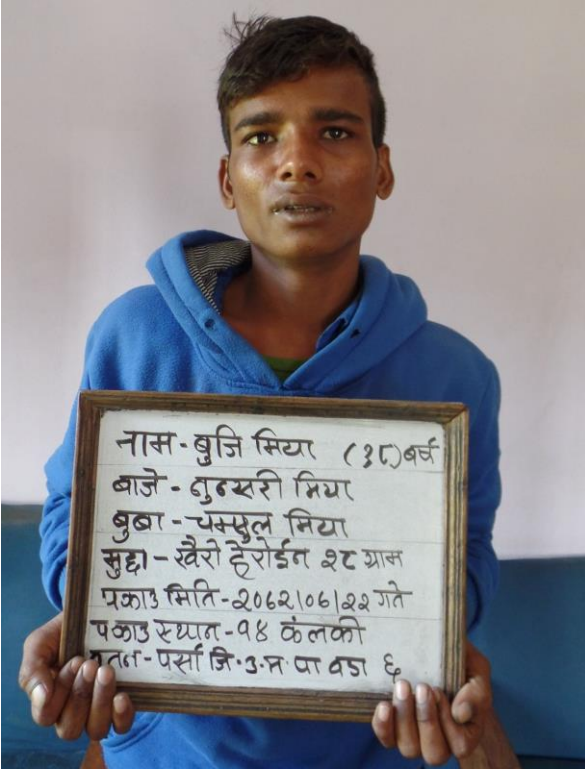 नाम - बुजि मिया (३८) बर्ष
बाजे - नुनसरी मिया
बुबा - चम्सुल मिया
मुद्दा - खैरो हेरोईन २८ ग्राम
पक्राउ मिति - २०६२।०६।२२ गते
पक्राउ स्थान - १४ कंलकी
वतन - पर्सा जि. उ. म. पा वडा ६